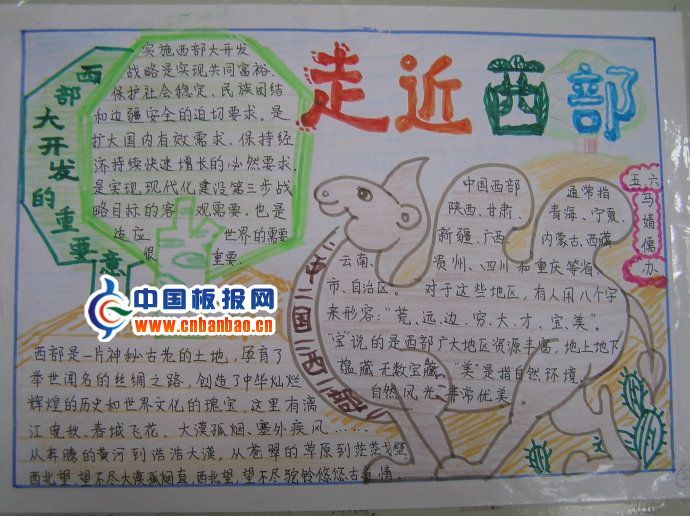 走近西部
西部大开发的重要意
实施西部大开发
战略是实现共同富裕、
保护社会稳定、民族团结
和边疆安全的迫切要求。是
扩大国内有效需求、保持经
济持续快速增长的必然要求。
是实现现代化建设第三步战
略目标的客观需要。也是
适应世界的需要
很重要.
五.六
马婧儒
办
中国西部通常指
陕西、甘肃、青海、宁夏、
新疆、广西、内蒙古、西藏
云南、贵州、四川和重庆等省、
市、自治区。对于这些地区,有人用八个字
来形容:“荒、远、边、穷、大、才、宝、美”。
“宝”说的是西部广大地区资源丰富,地上地下
蕴藏无数宝藏、“美”是指自然环境、
自然风光,非常优美。
中国西部
中国板报网
www.cnbanbao.cn
西部是一片神秘古老的土地,孕育了
举世闻名的丝绸之路,创造了中华灿烂
辉煌的历史和世界文化的瑰宝,这里有漓
江电秋、春城飞花、大漠孤烟、塞外疾风……
从奔腾的黄河到浩浩大漠,从苍翠的草原到茫茫戈壁,
西北望,望不尽大漠孤烟直,西北望,望不尽驼铃悠悠古着情。